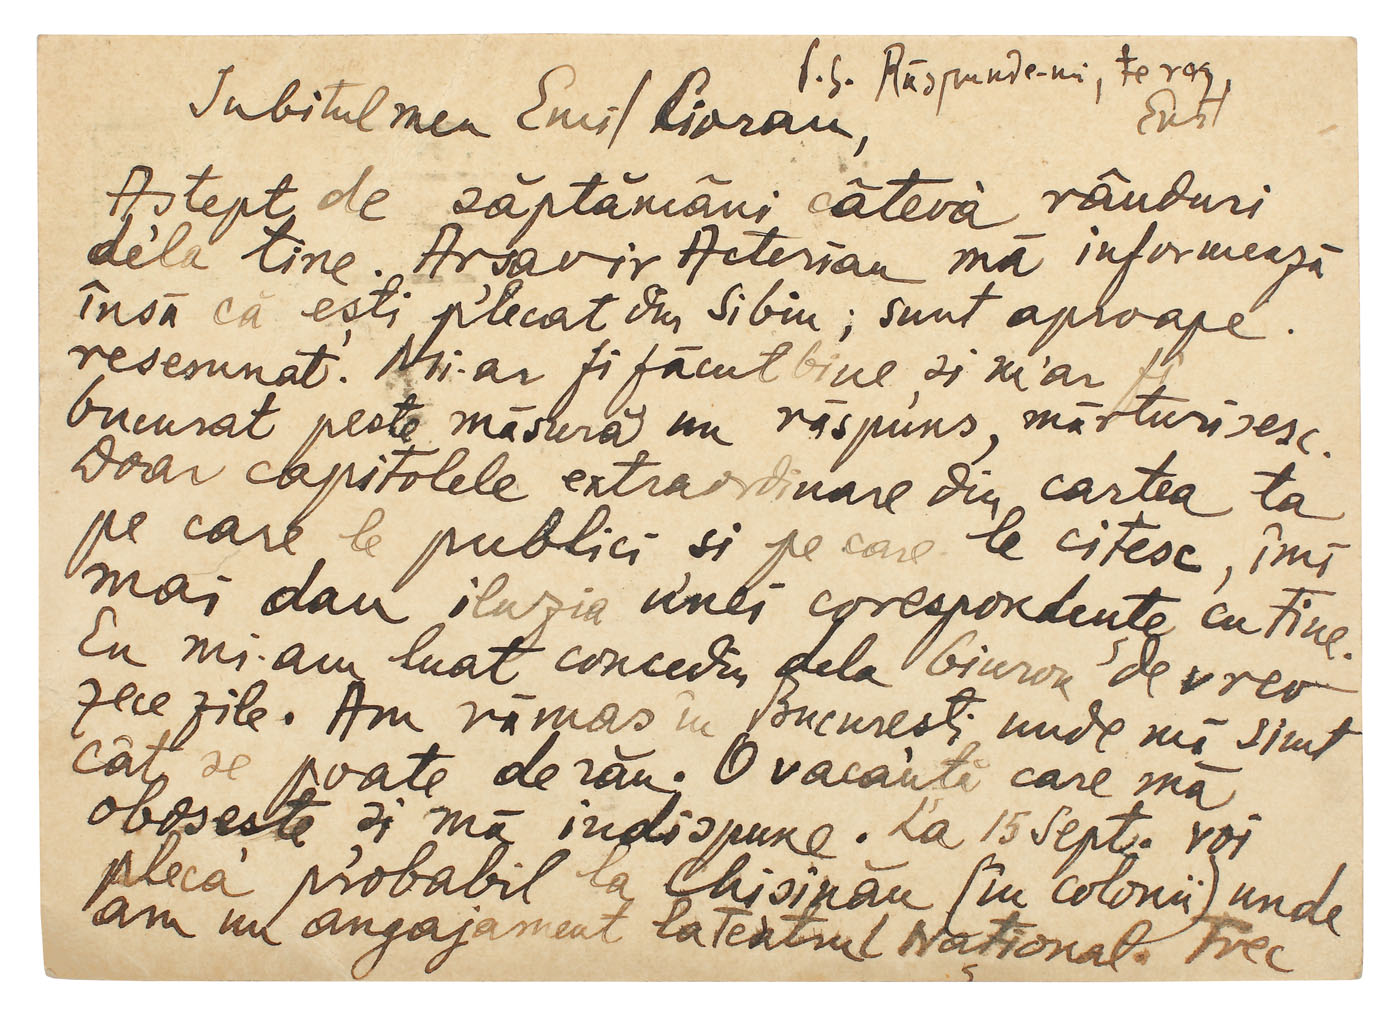 P.S. Răspunde-mi, te rog,
Emil
Iubitul meu Emil Cioran,
Aștept de săptămâni câteva rânduri
dela tine. Arșavir Acterian mă informează
însă că ești plecat din Sibiu; sunt aproape
resemnat. Mi-ar fi făcut bine și m'ar fi
bucurat peste măsură un răspuns, mărturisesc.
Doar capitolele extraordinare din cartea ta
pe care le publici si pe care le citesc, îmi
mai dau iluzia unei corespondențe cu tine.
Eu mi-am luat concediu dela biurou de vreo
zece zile. Am rămas în București unde mă simt
cât se poate de rău. O vacanță care mă
obosește și mă indispune. La 15 Sept. voi
pleca probabil la Chisinău (în colonii) unde
am un angajament la Teatrul Național. Trec